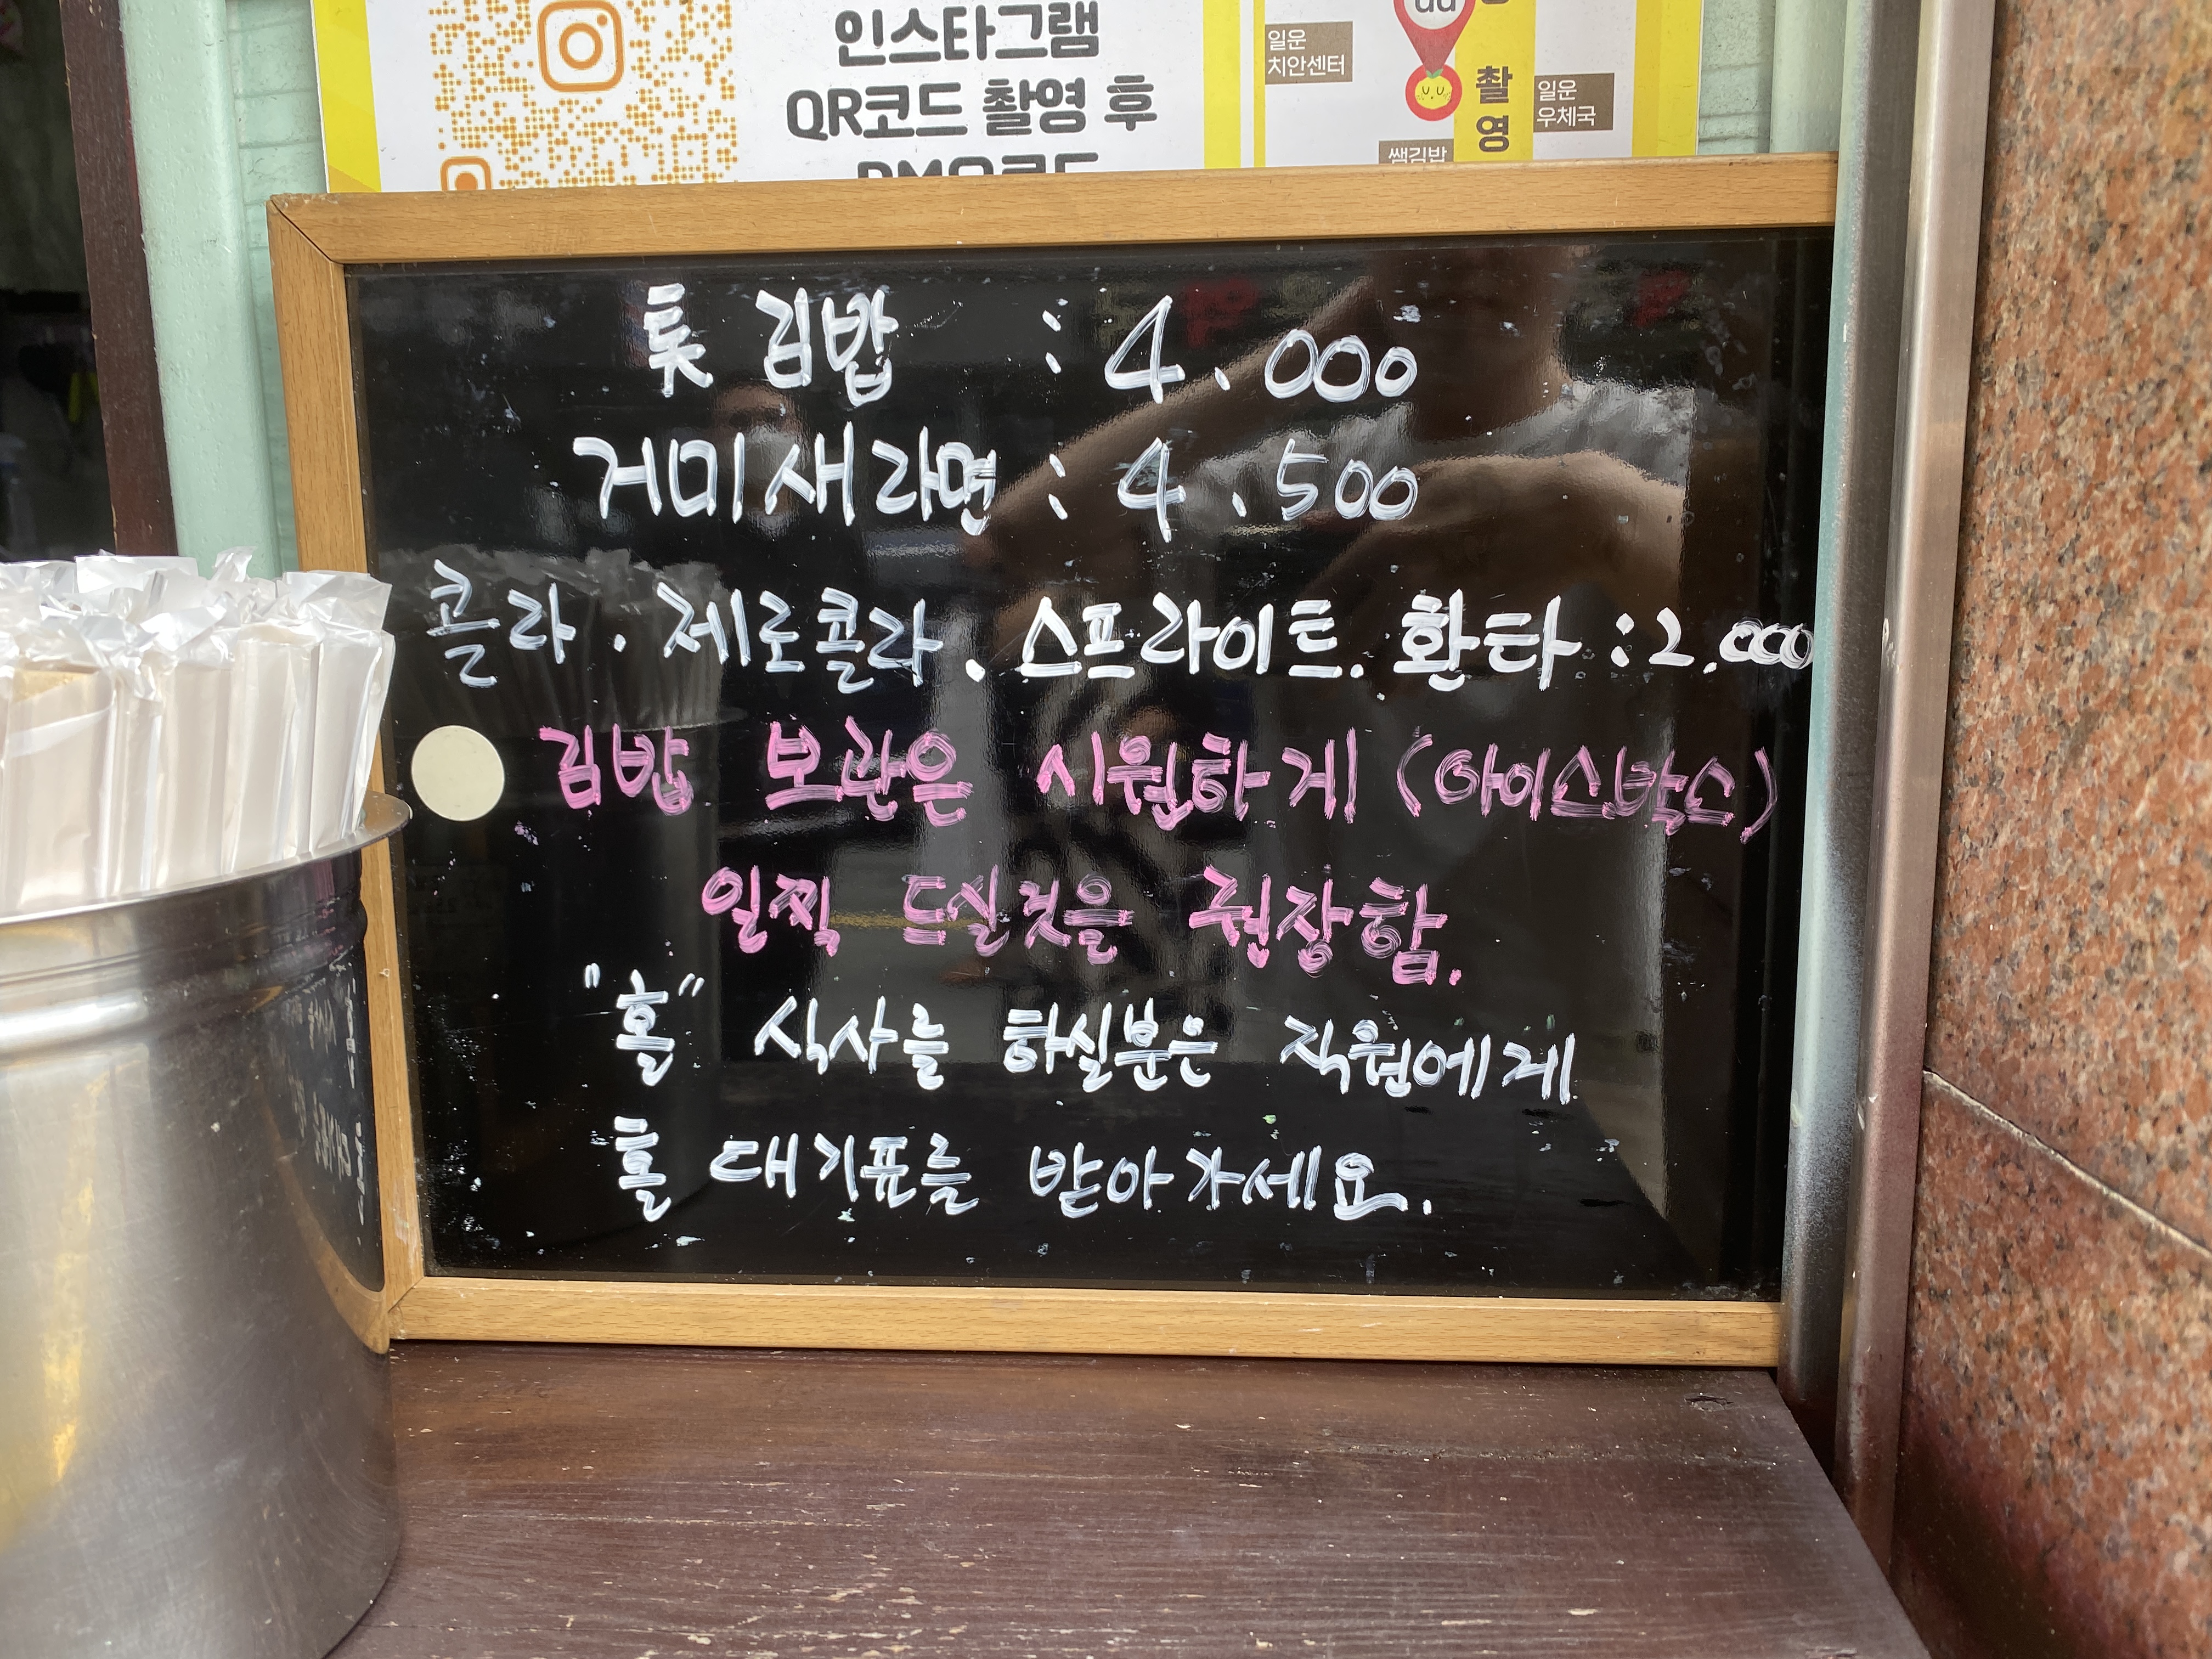 인스타그램
QR코드 촬영 후
일운
치안센터
촬
영
일운
우체국
쌤김밥
톳 김밥 : 4,000
거미새라면 : 4,500
콜라. 제로콜라. 스프라이트. 환타 : 2,000
김밥 보관은 시원하게 (아이스박스)
일찍 드실것을 권장함.
"홀" 식사를 하실분은 직원에게
홀 대기표를 받아가세요.